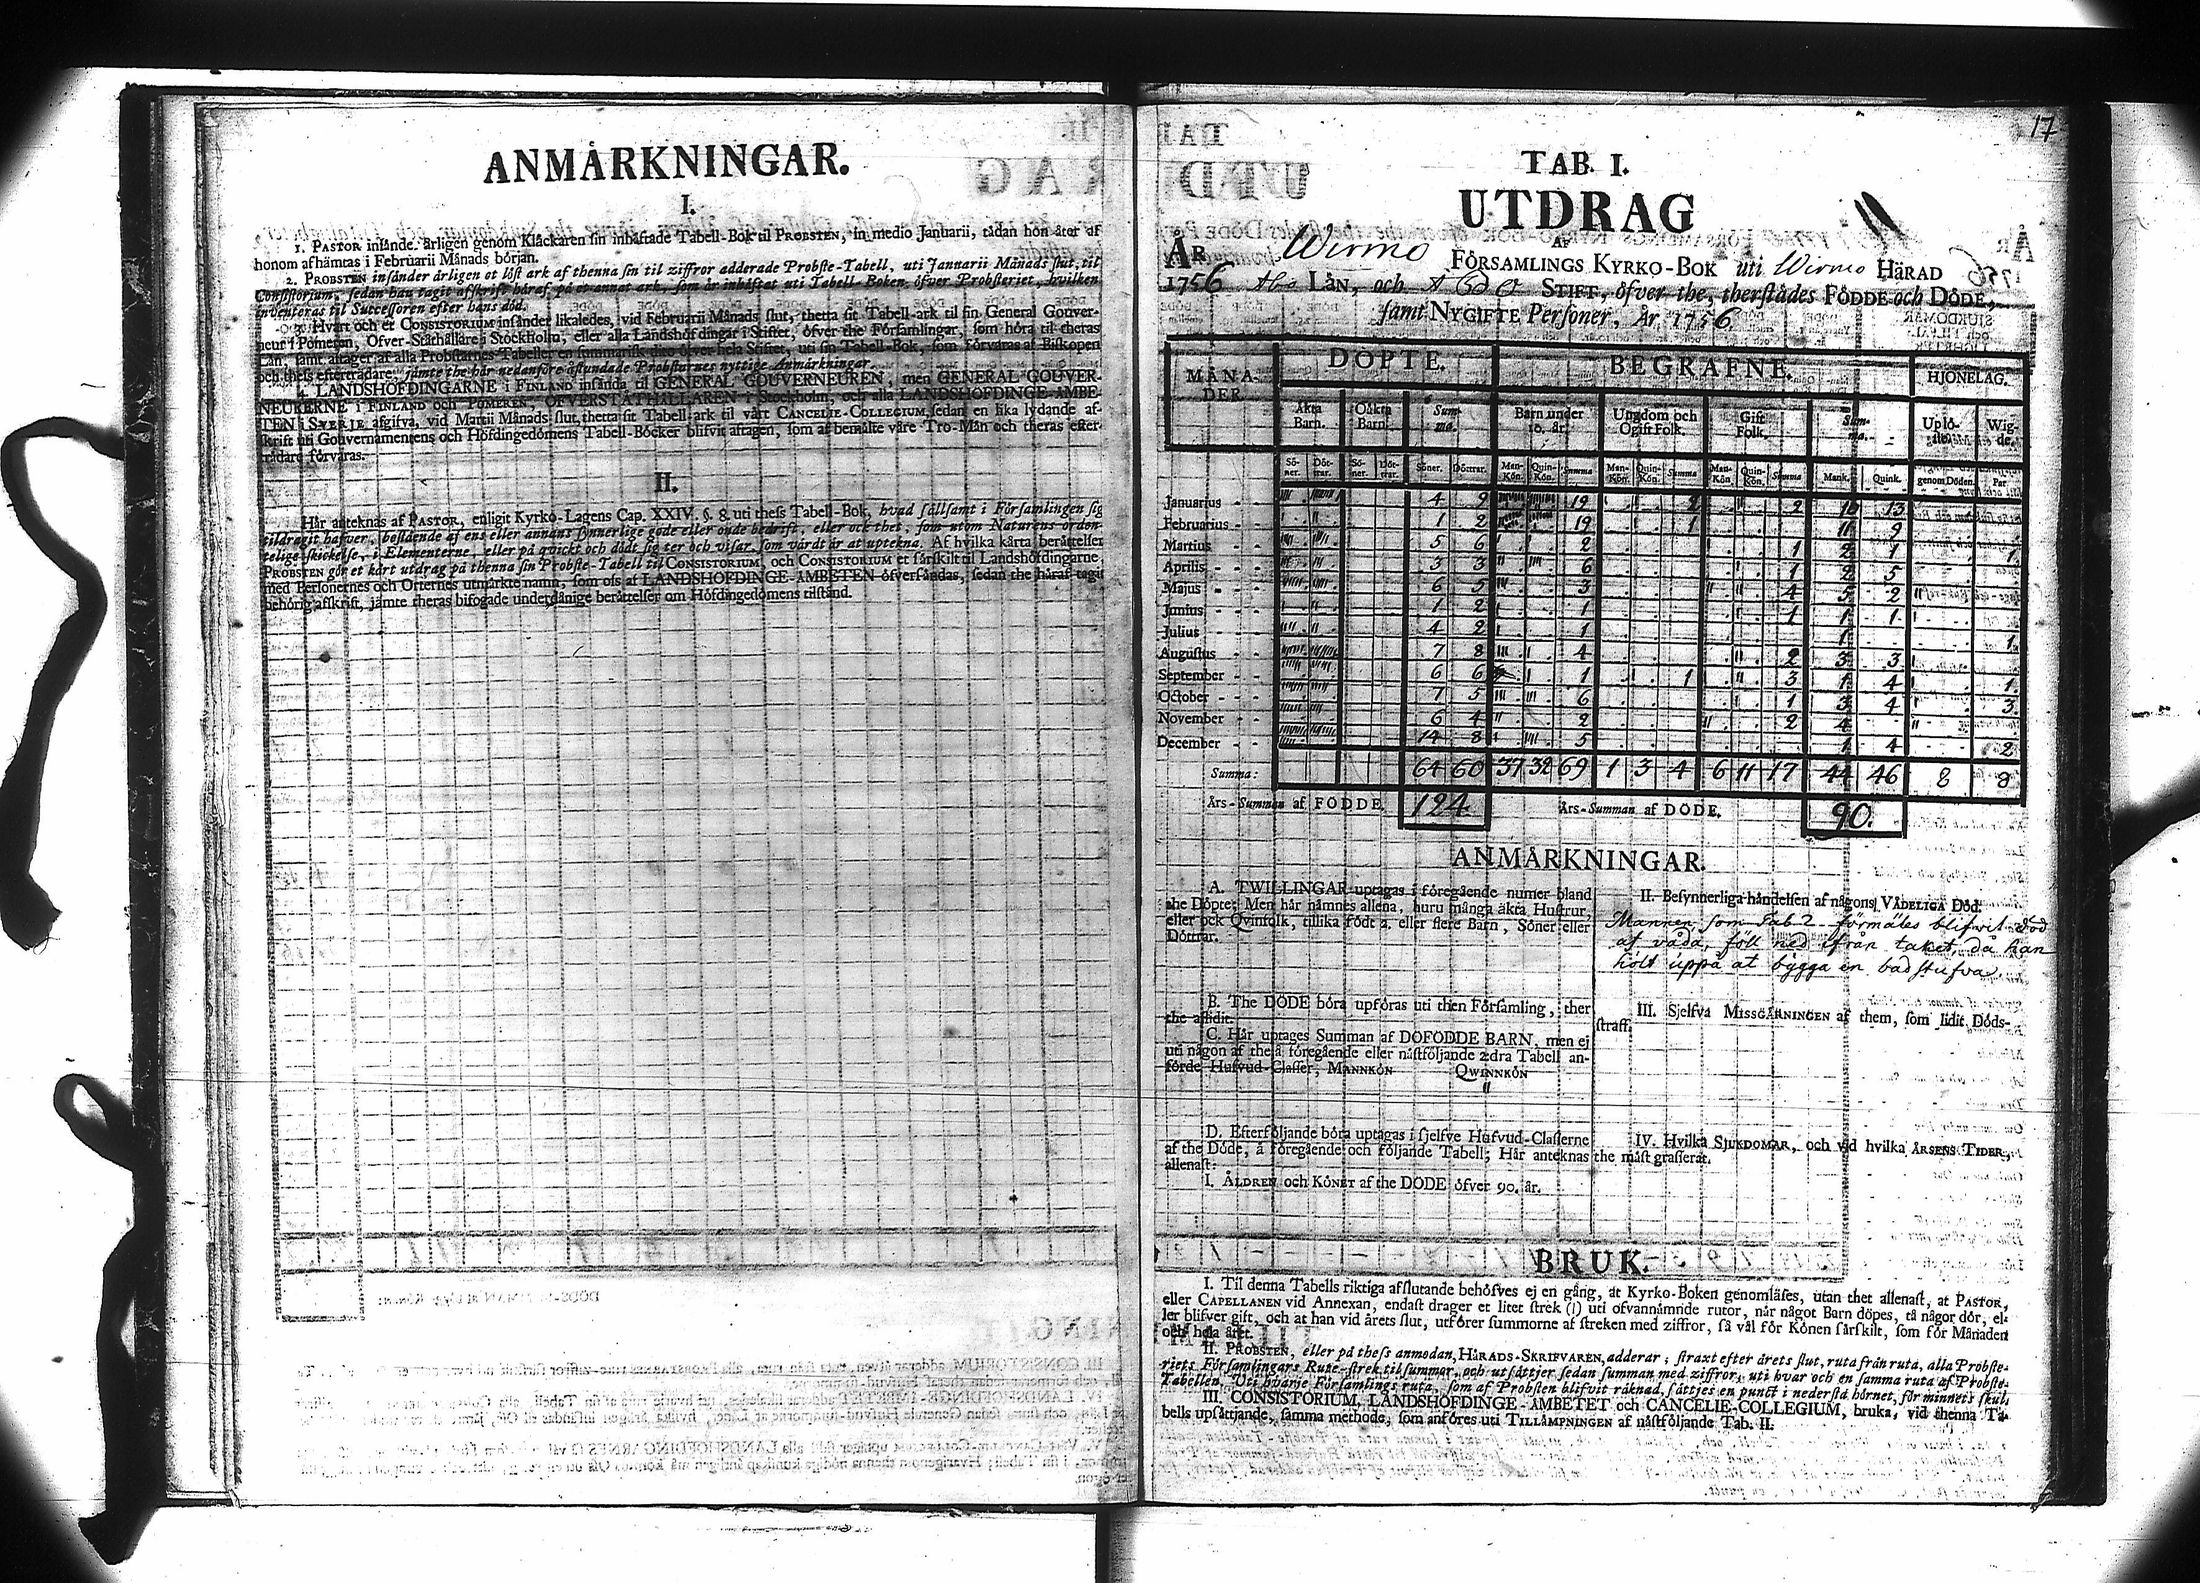 ANMÄRKNINGAR.
I.
1. PASTOR insände årligen genom Klåckaren sin inhäftade Tabell-Bok til PROBSTEN, in medio Januarii, tådan hon åter af
honom afhämtas i Februarii Månads början.
2. PROBSTEN insänder årligen et löst ark af thenna sin til ziffror adderade Probste-Tabell, uti Januarii Månads slut, til
Consistorium, sedan han tagit afskrift häraf på et annat ark, som är inhäftat uti Tabell-Boken öfver Probsteriet, hvilken
inventeras til Successoren efter hans död.
3. Hvart och et CONSISTORIUM insänder likaledes, vid Februarii Månads slut, thetta sit Tabell-ark til sin General Gouver-
neur i Pomeren, Öfver-Ståthållare i Stockholm, eller alla Landshöfdingar i Stiftet, öfver the Församlingar, som höra til theras
Län, samt aftager af alla Probstarnes Tabeller en summarisk dito öfver hela Stiftet, uti sin Tabell-Bok, som förvaras af Biskopen
och thess efterträdare jämte the här nedanföre åstundade Probstarnes nyttige Anmärkningar.
4. LANDSHÖFDINGARNE i FINLAND insända til GENERAL GOUVERNEUREN, men GENERAL GOUVER-
NEURERNE i FINLAND och POMEREN, ÖFVERSTÅTHÅLLAREN i Stockholm, och alla LANDSHÖFDINGE-ÄMBE-
TEN i SVERJE afgifva, vid Martii Månads slut thetta sit Tabell-ark til vårt CANCELIE-COLLEGIUM, sedan en lika lydande af-
skrift uti Gouvernamentens och Höfdingedömens Tabell-Böcker blifvit aftagen, som af bemälte våre Tro-Män och theras efter-
trädare förvaras.
II.
Här anteknas af PASTOR, enligit Kyrko-Lagens Cap. XXIV. §. 8. uti thess Tabell-Bok, hvad sällsamt i Församlingen sig
tildragit hafver, bestående af ens eller annans synnerlige gode eller onde bedrift, eller ock thet, som utom Naturens orden-
telige skickelse, i Elementerne, eller på quickt och dödt sig ter och visar, som värdt är at uptekna. Af hvilka kårta berättelser
PROBSTEN gör et kårt utdrag på thenna sin Probste-Tabell til CONSISTORIUM, och CONSISTORIUM et särskilt til Landshöfdingarne,
med Personernes och Orternes utmärkte namn, som oss af LANDSHÖFDINGE-ÄMBETEN öfversändas, sedan the häraf tagit
behörig afskrift, jämte theras bifogade underdånige berättelser om Höfdingedömens tilstånd.
17
TAB. I.
UTDRAG
AF
ÅR Wirmo FÖRSAMLINGS KYRKO-BOK uti Wirmo HÄRAD
1756 Åbo LÄN, och STIFT, öfver the, therstädes FÖDDE och DÖDE,
samt NYGIFTE Personer, År 1756
MÅNA-DER. DÖPTE. BEGRAFNE. HJONELAG.
Äkta Barn. Oäkta Barn. Summa. Barn under 10. år. Ungdom och Ogift Folk. Gift Folk. Summa. Uplöste. Wigde.
Söner. Döttrar. Söner. Döttrar. Söner. Döttrar. Man-Kön. Quin-Kön. Summa Man-Kön. Quin-Kön. Summa Man-Kön. Quin-Kön. Summa Mank. Quink. genom Döden. Par
Januarius 4 9 19 2 2 10 13
Februarius 1 2 19 1 9
Martius 5 6 2 1 2 1 1.
Aprilis 3 3 6 1 2 5
Majus 6 5 3 4 5 2
Junius 1 2 1 1 1 1
Julius 4 2 1 1 1.
Augustus 7 8 4 2 3 3
September 6 6 1 1 3 1 4 1.
October 7 5 6 1 3 4 3.
November 6 4 2 2 4
December 14 8 5 1 4 2
Summa: 64 60 37 32 69 1 3 4 6 11 17 44 46 8 8
Års-Summan af FÖDDE. 124 Års-Summan af DÖDE. 90.
ANMÄRKNINGAR.
A. TWILLINGAR uptagas i föregående numer bland
the Döpte; Men här nämnes allena, huru många äkta Hustrur,
eller ock Qvinfolk, tillika födt 2. eller flere Barn, Söner eller
Döttrar.
B. The DÖDE böra upföras uti then Församling, ther
the aflidit.
C. Här uptages Summan af DÖFÖDDE BARN, men ej
uti någon af theså föregående eller nästföljande 2dra Tabell an-
förde Hufvud-Classer, MANNKÖN QWINNKÖN
"
D. Efterföljande böra uptagas i sjelfve Hufvud-Classerne
af the Döde, å föregående och följande Tabell; Här anteknas
allenast:
I. ÅLDREN och KÖNET af the DÖDE öfver 90. år.
II. Besynnerliga händelsen af någons VÅDELIGA Död.
Mannen som Tab 2 förmäles blifvit död
af våda, föll ned ifrån taket, då han
hölt uppå at bygga en badstufva.
III. Sjelfva MISSGÄRNINGEN af them, som lidit Döds-
straff.
IV. Hvilka SJUKDOMAR, och vid hvilka ÅRSENS TIDER,
the mäst grasserat.
BRUK.
I. Til denna Tabells riktiga afslutande behöfves ej en gång, at Kyrko-Boken genomläses, utan thet allenast, at PASTOR,
eller CAPELLANEN vid Annexan, endast drager et litet strek (I) uti ofvannämnde rutor, når något Barn döpes, tå någor dör, el-
ler blifver gift, och at han vid årets slut, utförer summorne af streken med ziffror, så väl för Könen särskilt, som för Månaden
och hela året.
II. PROBSTEN, eller på thess anmodan, HÄRADS-SKRIFVAREN, adderar; straxt efter årets slut, ruta från ruta, alla Probste-
riets Församlingars Rute-strek til summar, och utsättjer sedan summan med ziffror, uti hvar och en samma ruta af Probste-
Tabellen. Uti hvarje Församlings ruta, som af Probsten blifvit räknad, sättjes en punct i nedersta hörnet, för minnets skul.
III. CONSISTORIUM, LANDSHÖFDINGE-ÄMBETET och CANCELIE-COLLEGIUM, bruka, vid thenna Ta-
bells upsättjande, samma methode, som anföres uti TILLÄMPNINGEN af nästföljande Tab. II.